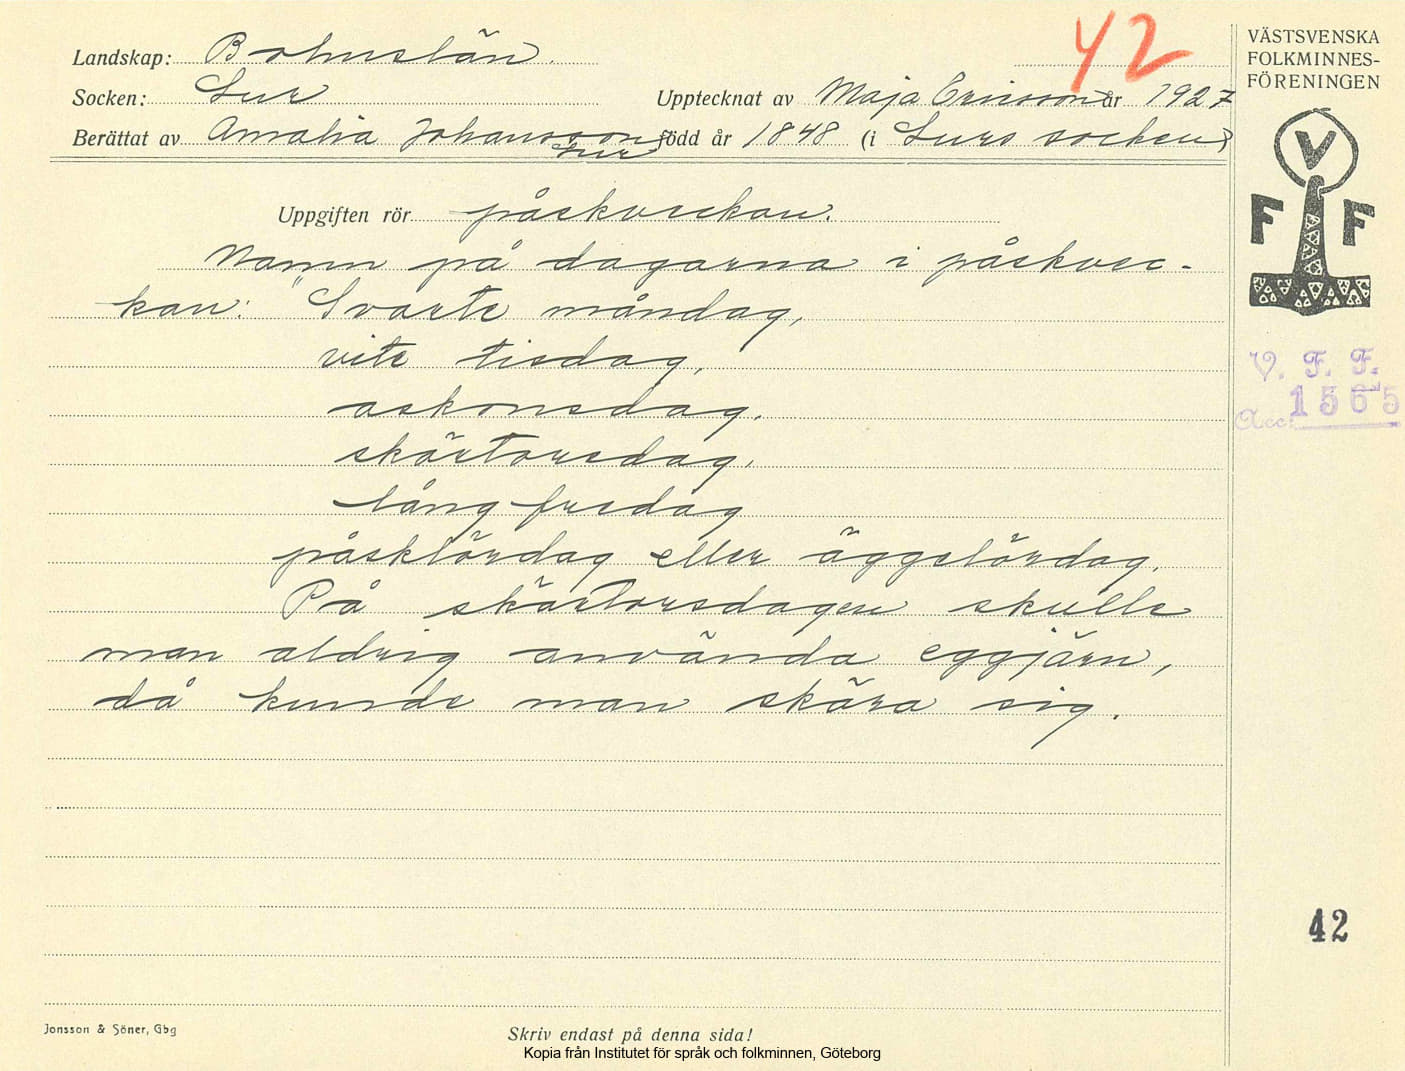 42
VÄSTSVENSKA
FOLKMINNES-
FÖRENINGEN
Landskap: Bohuslän.
Socken: Lur
Upptecknat av Maja Ericsson år 1927
Berättat av Amalia Johansson född år 1848 (i Lurs socken)
Lur
V
F F
Uppgiften rör påskveckan.
Namn på dagarna i påskvec-
kan: "Svarte måndag,
vite tisdag,
askonsdag,
skärtorsdag,
långfredag
påsklördag eller äggelördag.
På skärtorsdagen skulle
man aldrig använda eggjärn,
då kunde man skära sig.
V. F. F.
Acc: 1565
42
Jonsson & Söner, Gbg
Skriv endast på denna sida!
Kopia från Institutet för språk och folkminnen, Göteborg